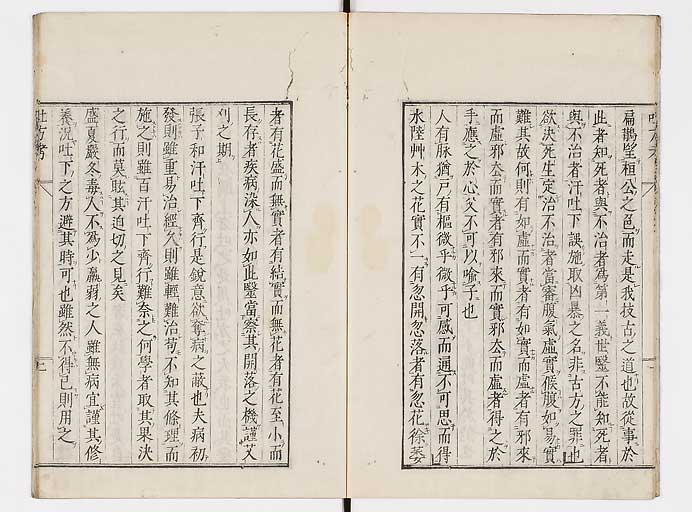 扁鵲望桓公之色而走是我技古之道也故從事於
此者知死者與不治者為第一義世毉不能知死者
與不治者汗吐下誤施取凶暴之名非古方之罪也
欲决死生定治不治者當審腹氣虛實候腹如易實
難其故何則有如虛而實者有如實而虛者有邪來
而虛邪去而實者有邪來而實邪去而虛者得之於
手應之於心父不可以喻子也
人有脉猶戸有樞微乎微乎可感而遁不可思而得
水陸艸木之花實不一有忽開忽落者有忽花徐萎
者有花盛而無實者有結實而無花者有花至小而
長存者疾病染人亦如此毉當察其開落之機謹艾
刈之期
張子和汗吐下齊行是銳意欲奪病之蔽也夫病初
發則雖重易治經久則雖輕難治苟不知其條理而
施之則雖百汗吐下齊行難奈之何學者取其果决
之行而莫眩其迫切之見矣
盛夏嚴冬毒入不為少羸弱之人雖無病宜謹其修
養況吐下之方避其時可也雖然不得已則用之
吐方考